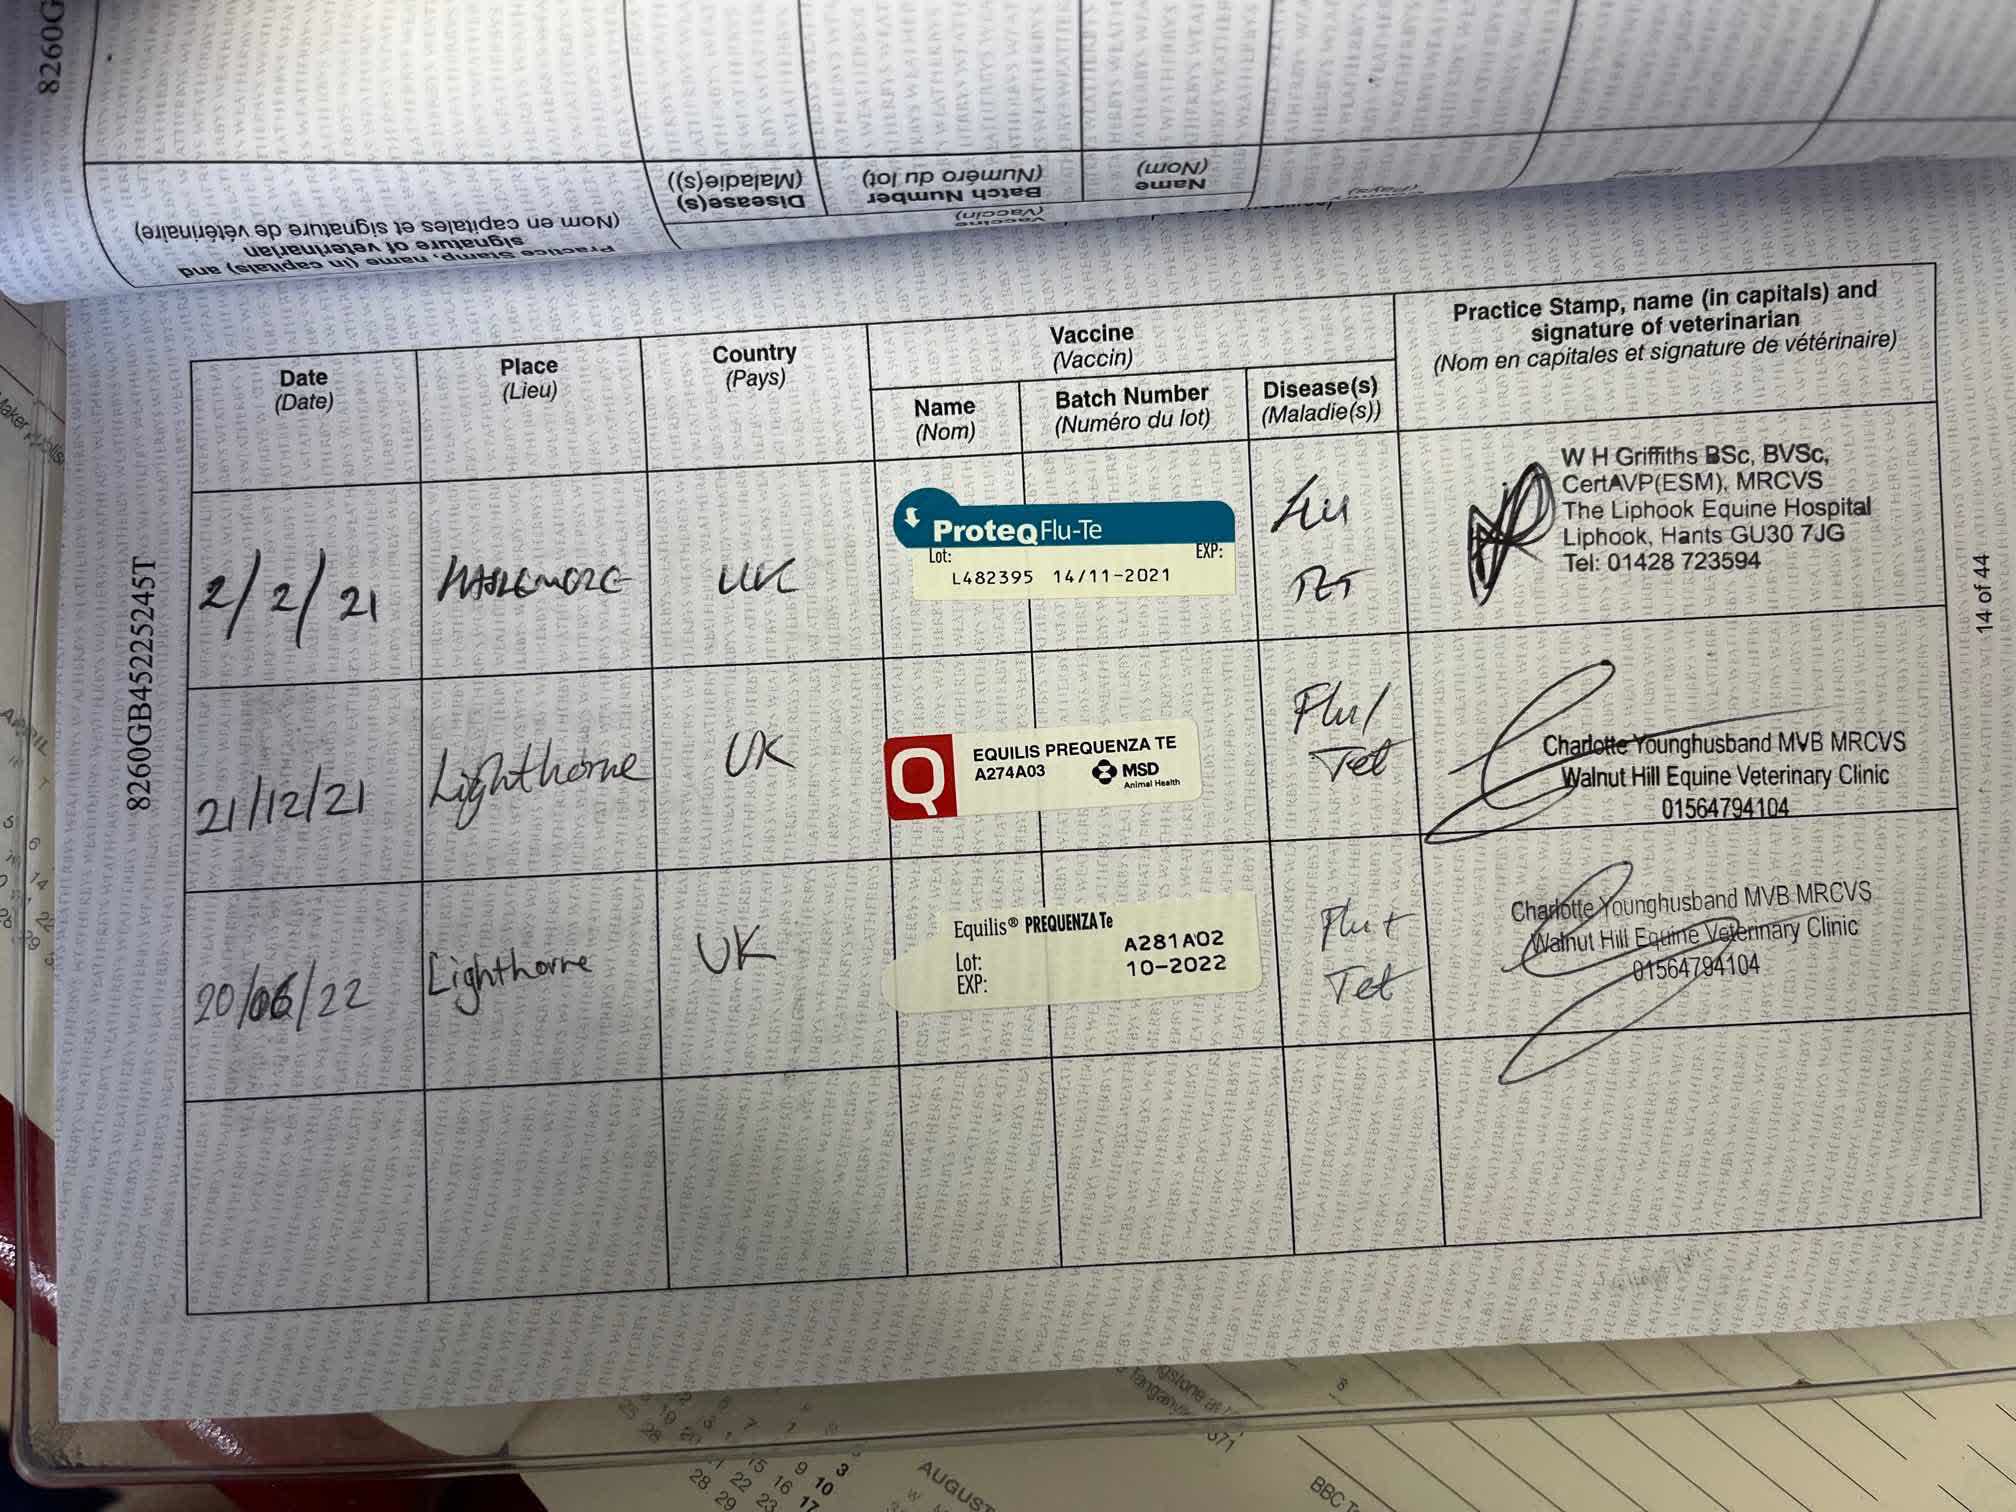 8260G
Practice Stamp, name (in capitals) and
signature of veterinarian
(Nom en capitales et signature de vétérinaire)
Disease(s)
(Maladie(s))
Vaccine
(Vaccin)
Batch Number
(Numéro du lot)
Name
(Nom)
(Pays)
8260GB45225245T
14 of 44
Date
(Date)
Place
(Lieu)
Country
(Pays)
Vaccine
(Vaccin)
Name
(Nom)
Batch Number
(Numéro du lot)
Disease(s)
(Maladie(s))
Practice Stamp, name (in capitals) and
signature of veterinarian
(Nom en capitales et signature de vétérinaire)
2/2/21
HASLEMERE
UK
ProteQ Flu-Te
Lot: EXP:
L482395 14/11-2021
Flu
TET
W H Griffiths BSc, BVSc,
CertAVP(ESM), MRCVS
The Liphook Equine Hospital
Liphook, Hants GU30 7JG
Tel: 01428 723594
21/12/21
Lighthorne
UK
Q
EQUILIS PREQUENZA TE
A274A03
MSD
Animal Health
Flu/
Tet
Charlotte Younghusband MVB MRCVS
Walnut Hill Equine Veterinary Clinic
01564794104
20/06/22
Lighthorne
UK
Equilis® PREQUENZA Te
Lot: A281A02
EXP: 10-2022
Flu +
Tet
Charlotte Younghusband MVB MRCVS
Walnut Hill Equine Veterinary Clinic
01564794104
AUGUST